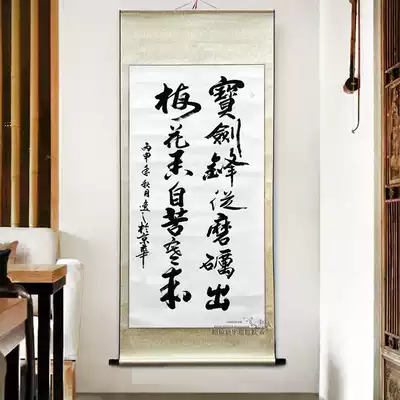 寶劍鋒從磨礪出
梅花香自苦寒來
丙申年秋月於京華